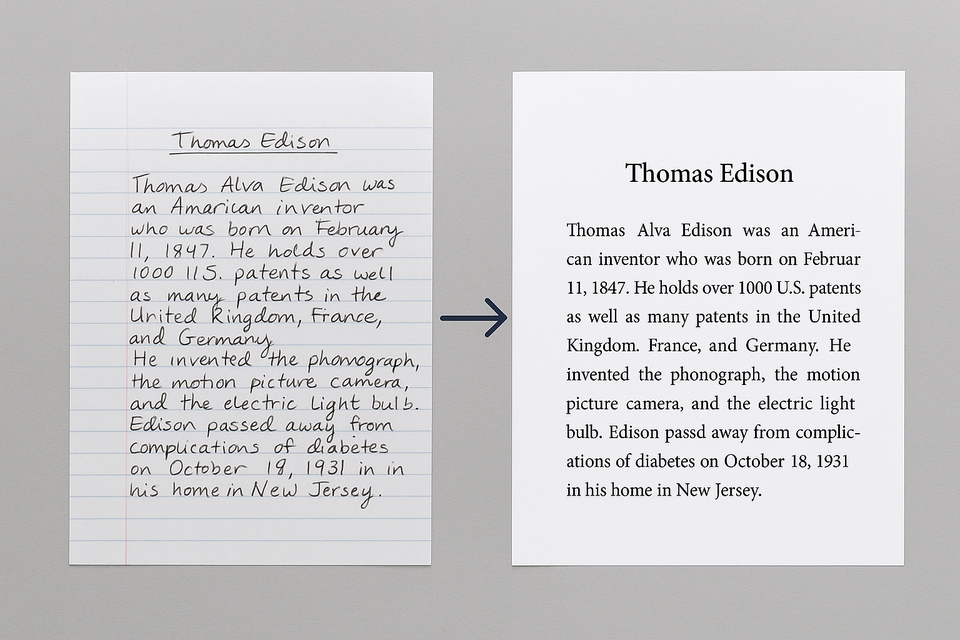 Thomas Edison
Thomas Alva Edison was
an Amarican inventor
who was born on February
11, 1847. He holds over
1000 11S. patents as well
as many patents in the
United Kingdom, France,
and Germany
He invented the phomograph,
the motion picture camera,
and the electric light bulb.
Edison passed away from
complications of diabetes
on October 19, 1931 in in
his home in New Jersey.
Thomas Edison
Thomas Alva Edison was an Ameri-
can inventor who was born on Februar
11, 1847. He holds over 1000 U.S. patents
as well as many patents in the United
Kingdom. France, and Germany. He
invented the phonograph, the motion
picture camera, and the electric light
bulb. Edison passd away from complic-
ations of diabetes on October 18, 1931
in his home in New Jersey.